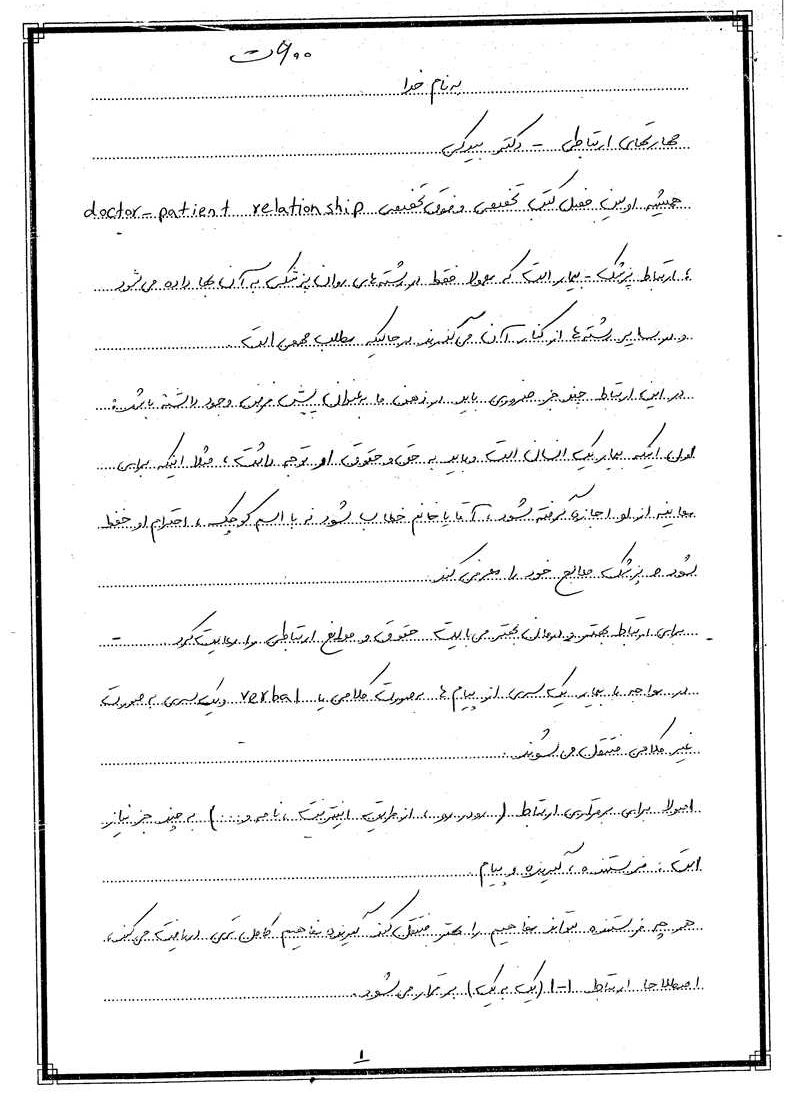 ۶۰۰ ت
به نام خدا
مهارتهای ارتباطی - دکتر بیدکی
همیشه اولین فصل کتب تخصصی و فوق تخصصی doctor-patient relationship
؛ ارتباط پزشک - بیمار است که معمولا فقط در رشته‌های روان پزشکی به آن بها داده می‌شود
و در سایر رشته‌ها از کنار آن می‌گذرند در حالیکه مطلب مهمی است.
در این ارتباط چند جز ضروری باید در ذهن ما بعنوان پیش فرض وجود داشته باشد:
اول اینکه بیمار یک انسان است و باید به حق و حقوق او توجه داشت، مثلا اینکه برای
معاینه از او اجازه گرفته شود، آقا یا خانم خطاب شود نه با اسم کوچک، احترام او حفظ
شود و پزشک معالج خود را معرفی کند.
برای ارتباط بهتر و درمان بهتر می‌بایست حقوق و موانع ارتباطی را رعایت کرد.
در مواجه با بیمار یک سری از پیام ها بصورت کلامی یا verbal و یک سری به صورت
غیر کلامی منتقل می‌شوند.
اصولا برای برقراری ارتباط (رودررو، از طریق اینترنت، نامه و...) به چند جز نیاز
است: فرستنده، گیرنده و پیام.
هر چه فرستنده بتواند مفاهیم را بهتر منتقل کند گیرنده مفاهیم کامل تری دریافت می‌کند،
اصطلاحا ارتباط ۱-۱ (یک به یک) برقرار می‌شود.
۱